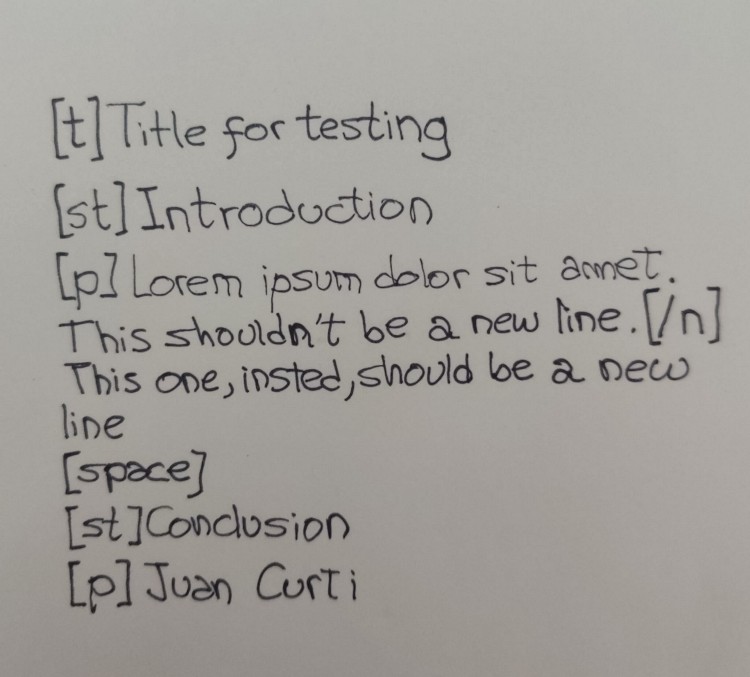 [t] Title for testing
[st] Introduction
[p] Lorem ipsum dolor sit amet.
This shouldn't be a new line. [/n]
This one, insted, should be a new
line
[space]
[st] Conclusion
[p] Juan Curti